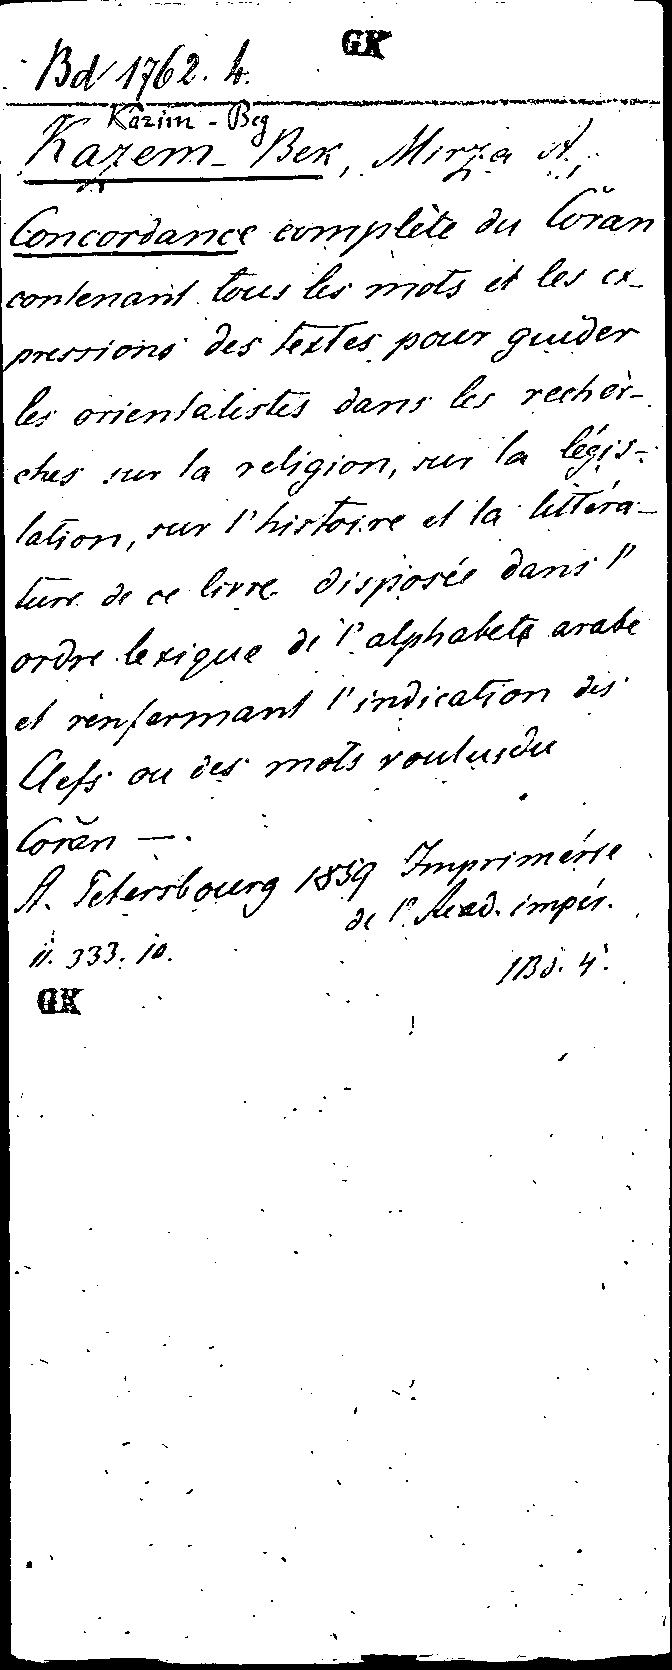 GK
Bd 1762. 4.
Kāzim - Beg
Kazem-Bek, Mirza A.,
Concordance complète du Corăn
contenant tous les mots et les ex-
pressions des textes pour guider
les orientalistes dans les recher-
ches sur la religion, sur la légis-
lation, sur l'histoire et la littéra-
ture de ce livre disposée dans l'
ordre lexique de l'alphabete arabe
et renfermant l'indication des
Clefs ou des mots voulus du
Corăn —.
St. Petersbourg 1859 Imprimérie
de l'Acad. impér.
II. 333. 10.
1 Bd. 4°.
GK